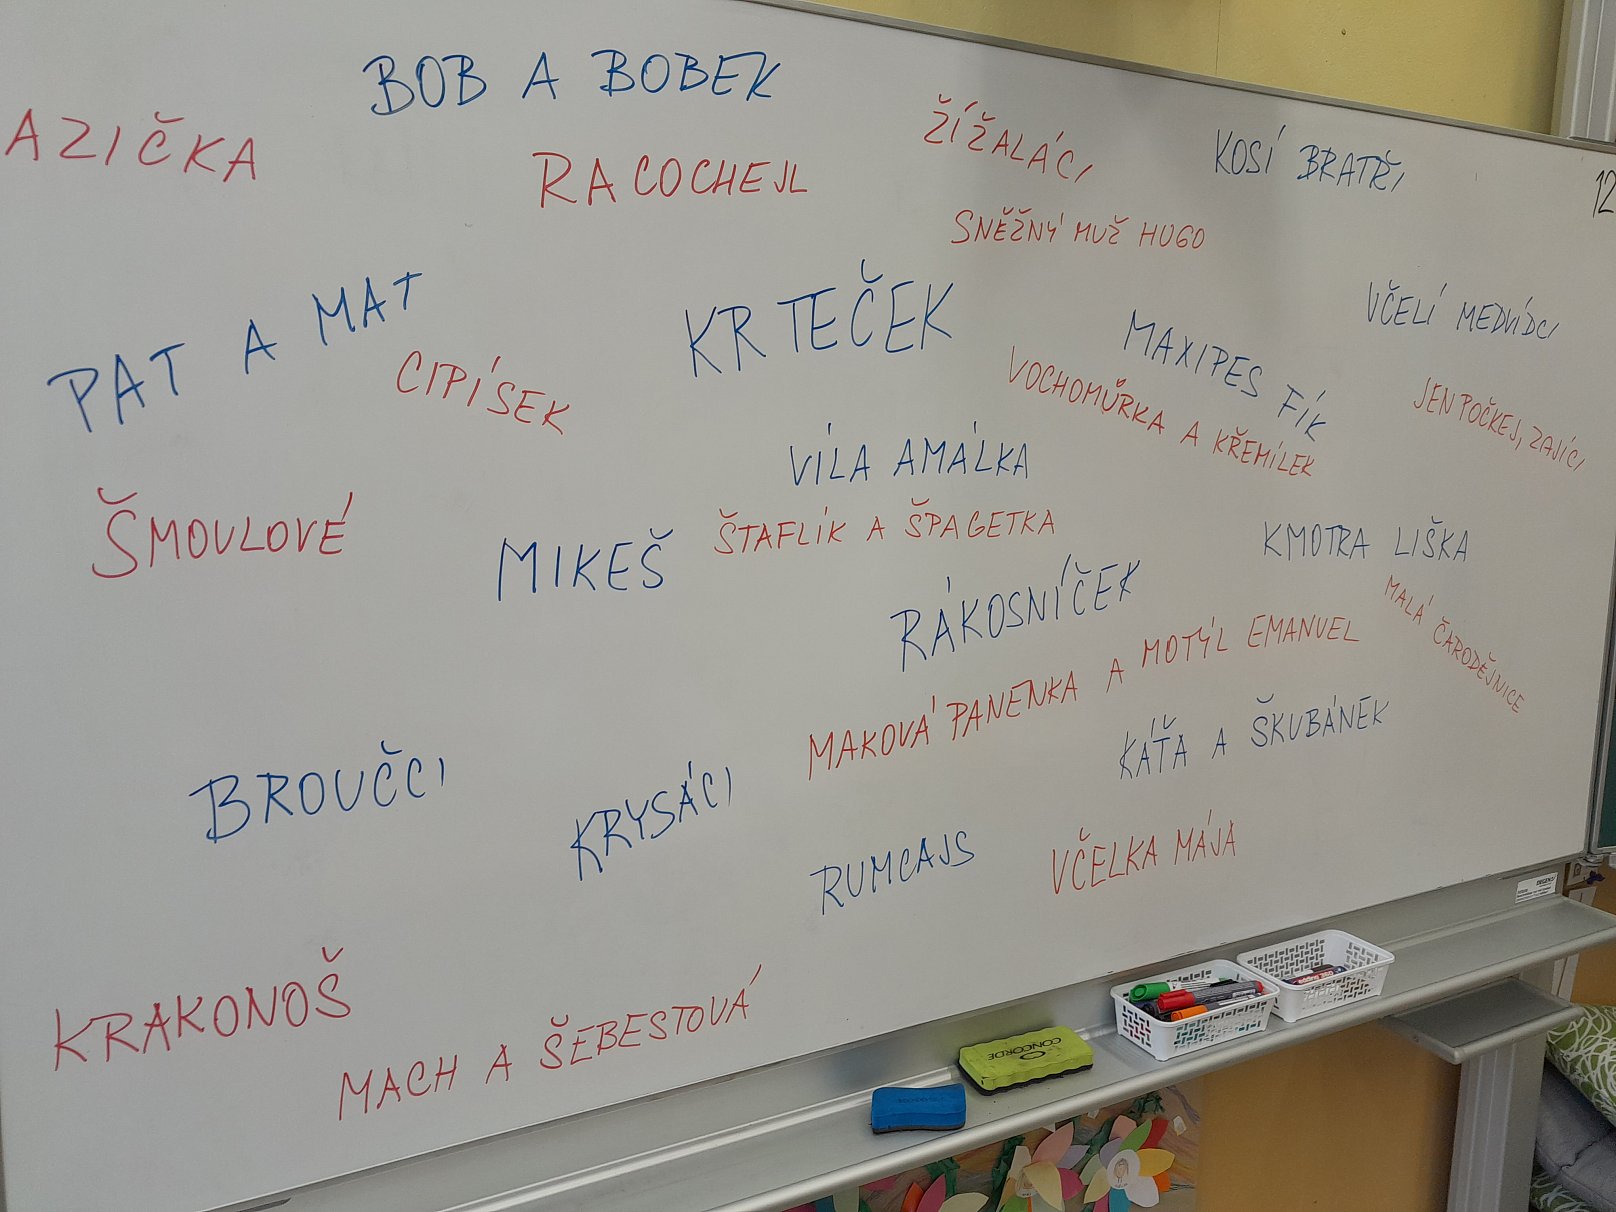 BOB A BOBEK
AZIČKA
RACOCHEJL
ŽÍŽALÁCI
KOSÍ BRATŘI
12
SNĚŽNÝ MUŽ HUGO
PAT A MAT
CIPÍSEK
KRTEČEK
MAXIPES FÍK
VČELÍ MEDVÍDCI
VOCHOMŮRKA A KŘEMÍLEK
JEN POČKEJ, ZAJÍCI
VÍLA AMÁLKA
ŠMOULOVÉ
MIKEŠ
ŠTAFLÍK A ŠPAGETKA
KMOTRA LIŠKA
RÁKOSNÍČEK
MALÁ ČARODĚJNICE
MAKOVÁ PANENKA A MOTÝL EMANUEL
KÁŤA A ŠKUBÁNEK
BROUČCI
KRYSÁCI
RUMCAJS
VČELKA MÁJA
KRAKONOŠ
MACH A ŠEBESTOVÁ
CONCORDE